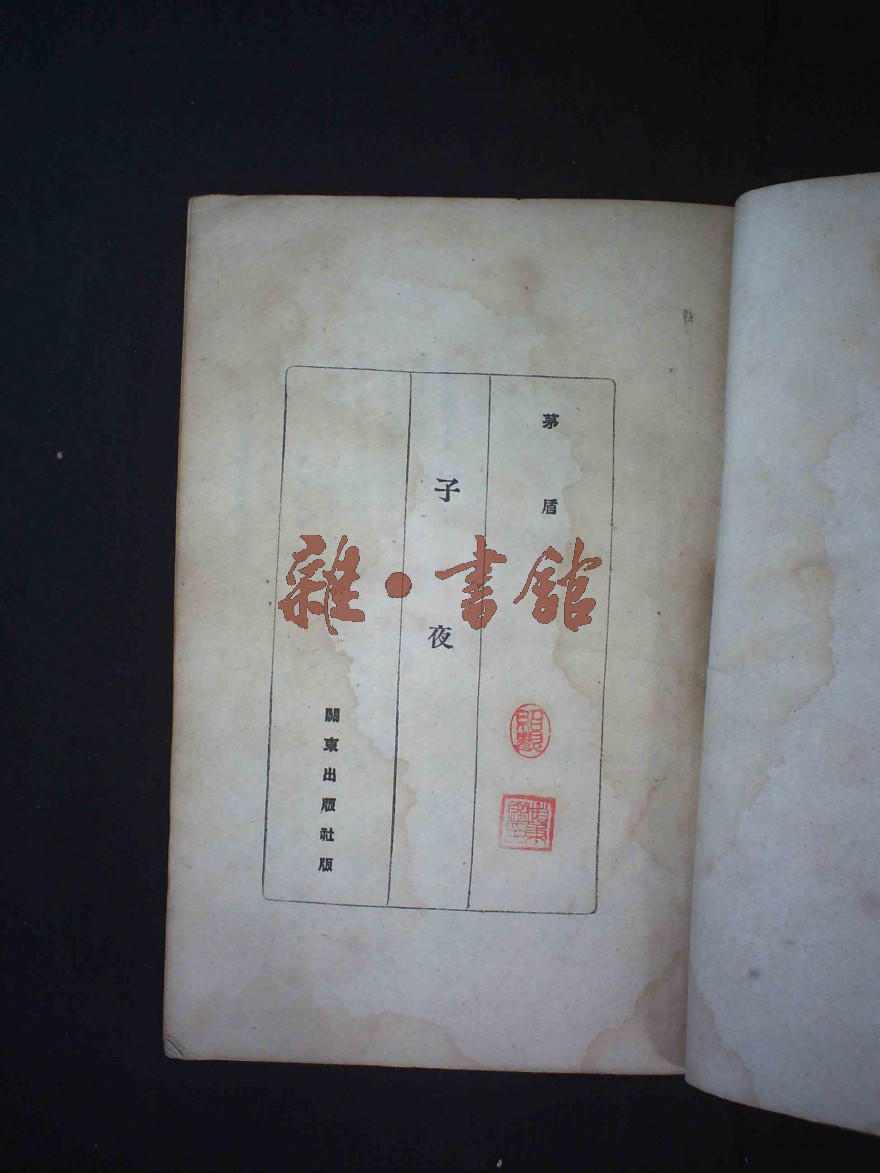 茅盾
子夜
關東出版社版
雜·書館